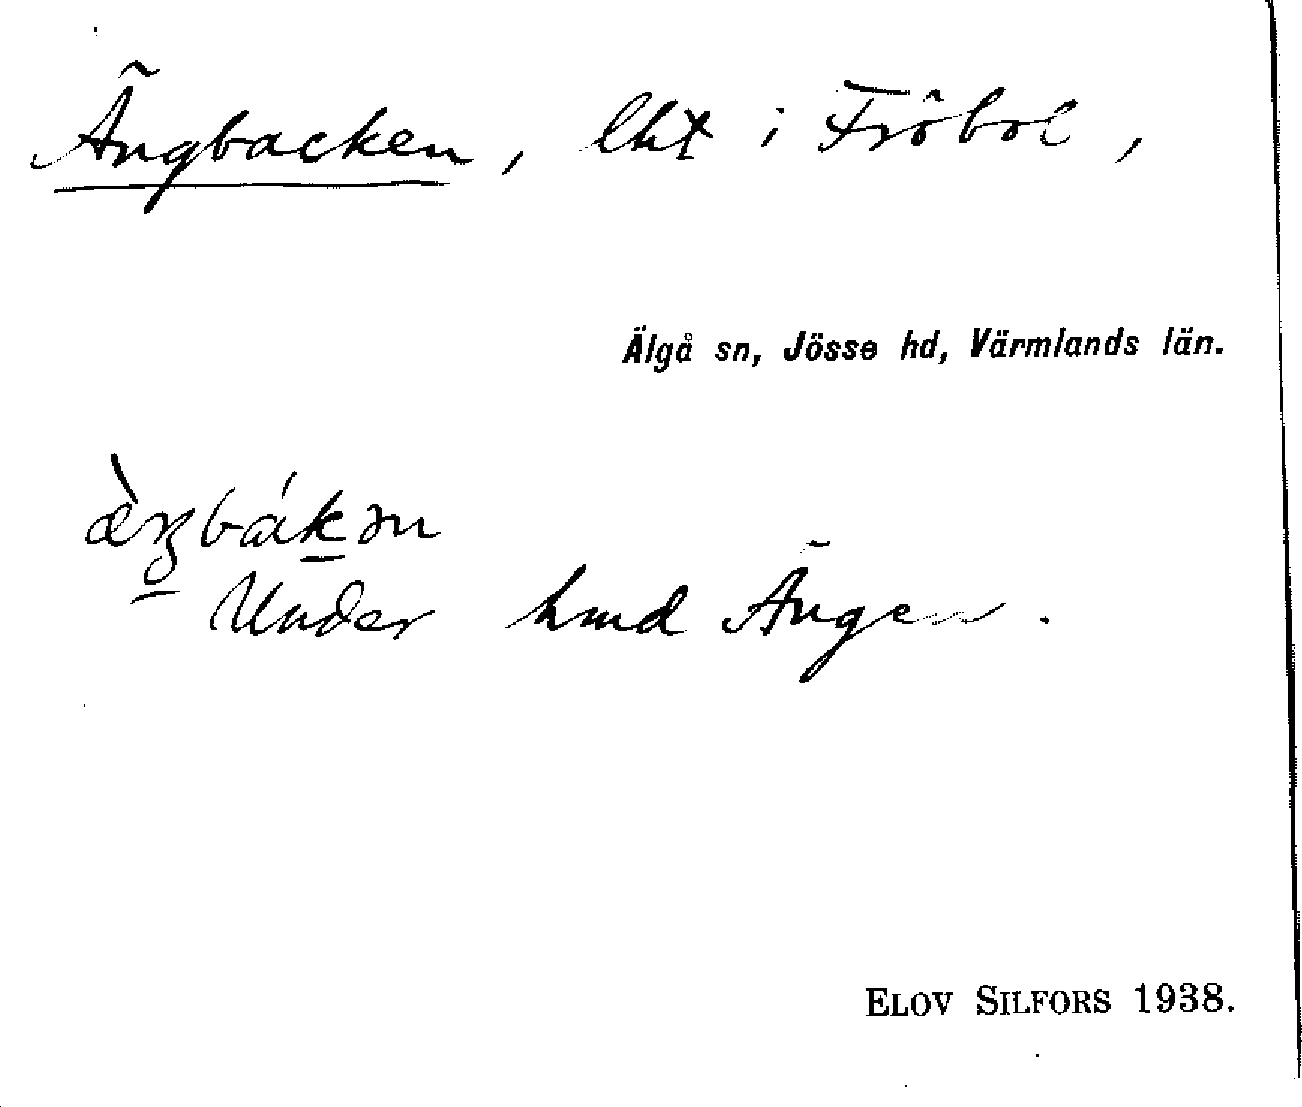 Ängbacken, lht i Fröbol,
Älgå sn, Jösse hd, Värmlands län.
æ̀ŋbákən
Under hmd Ängen.
ELOV SILFORS 1938.